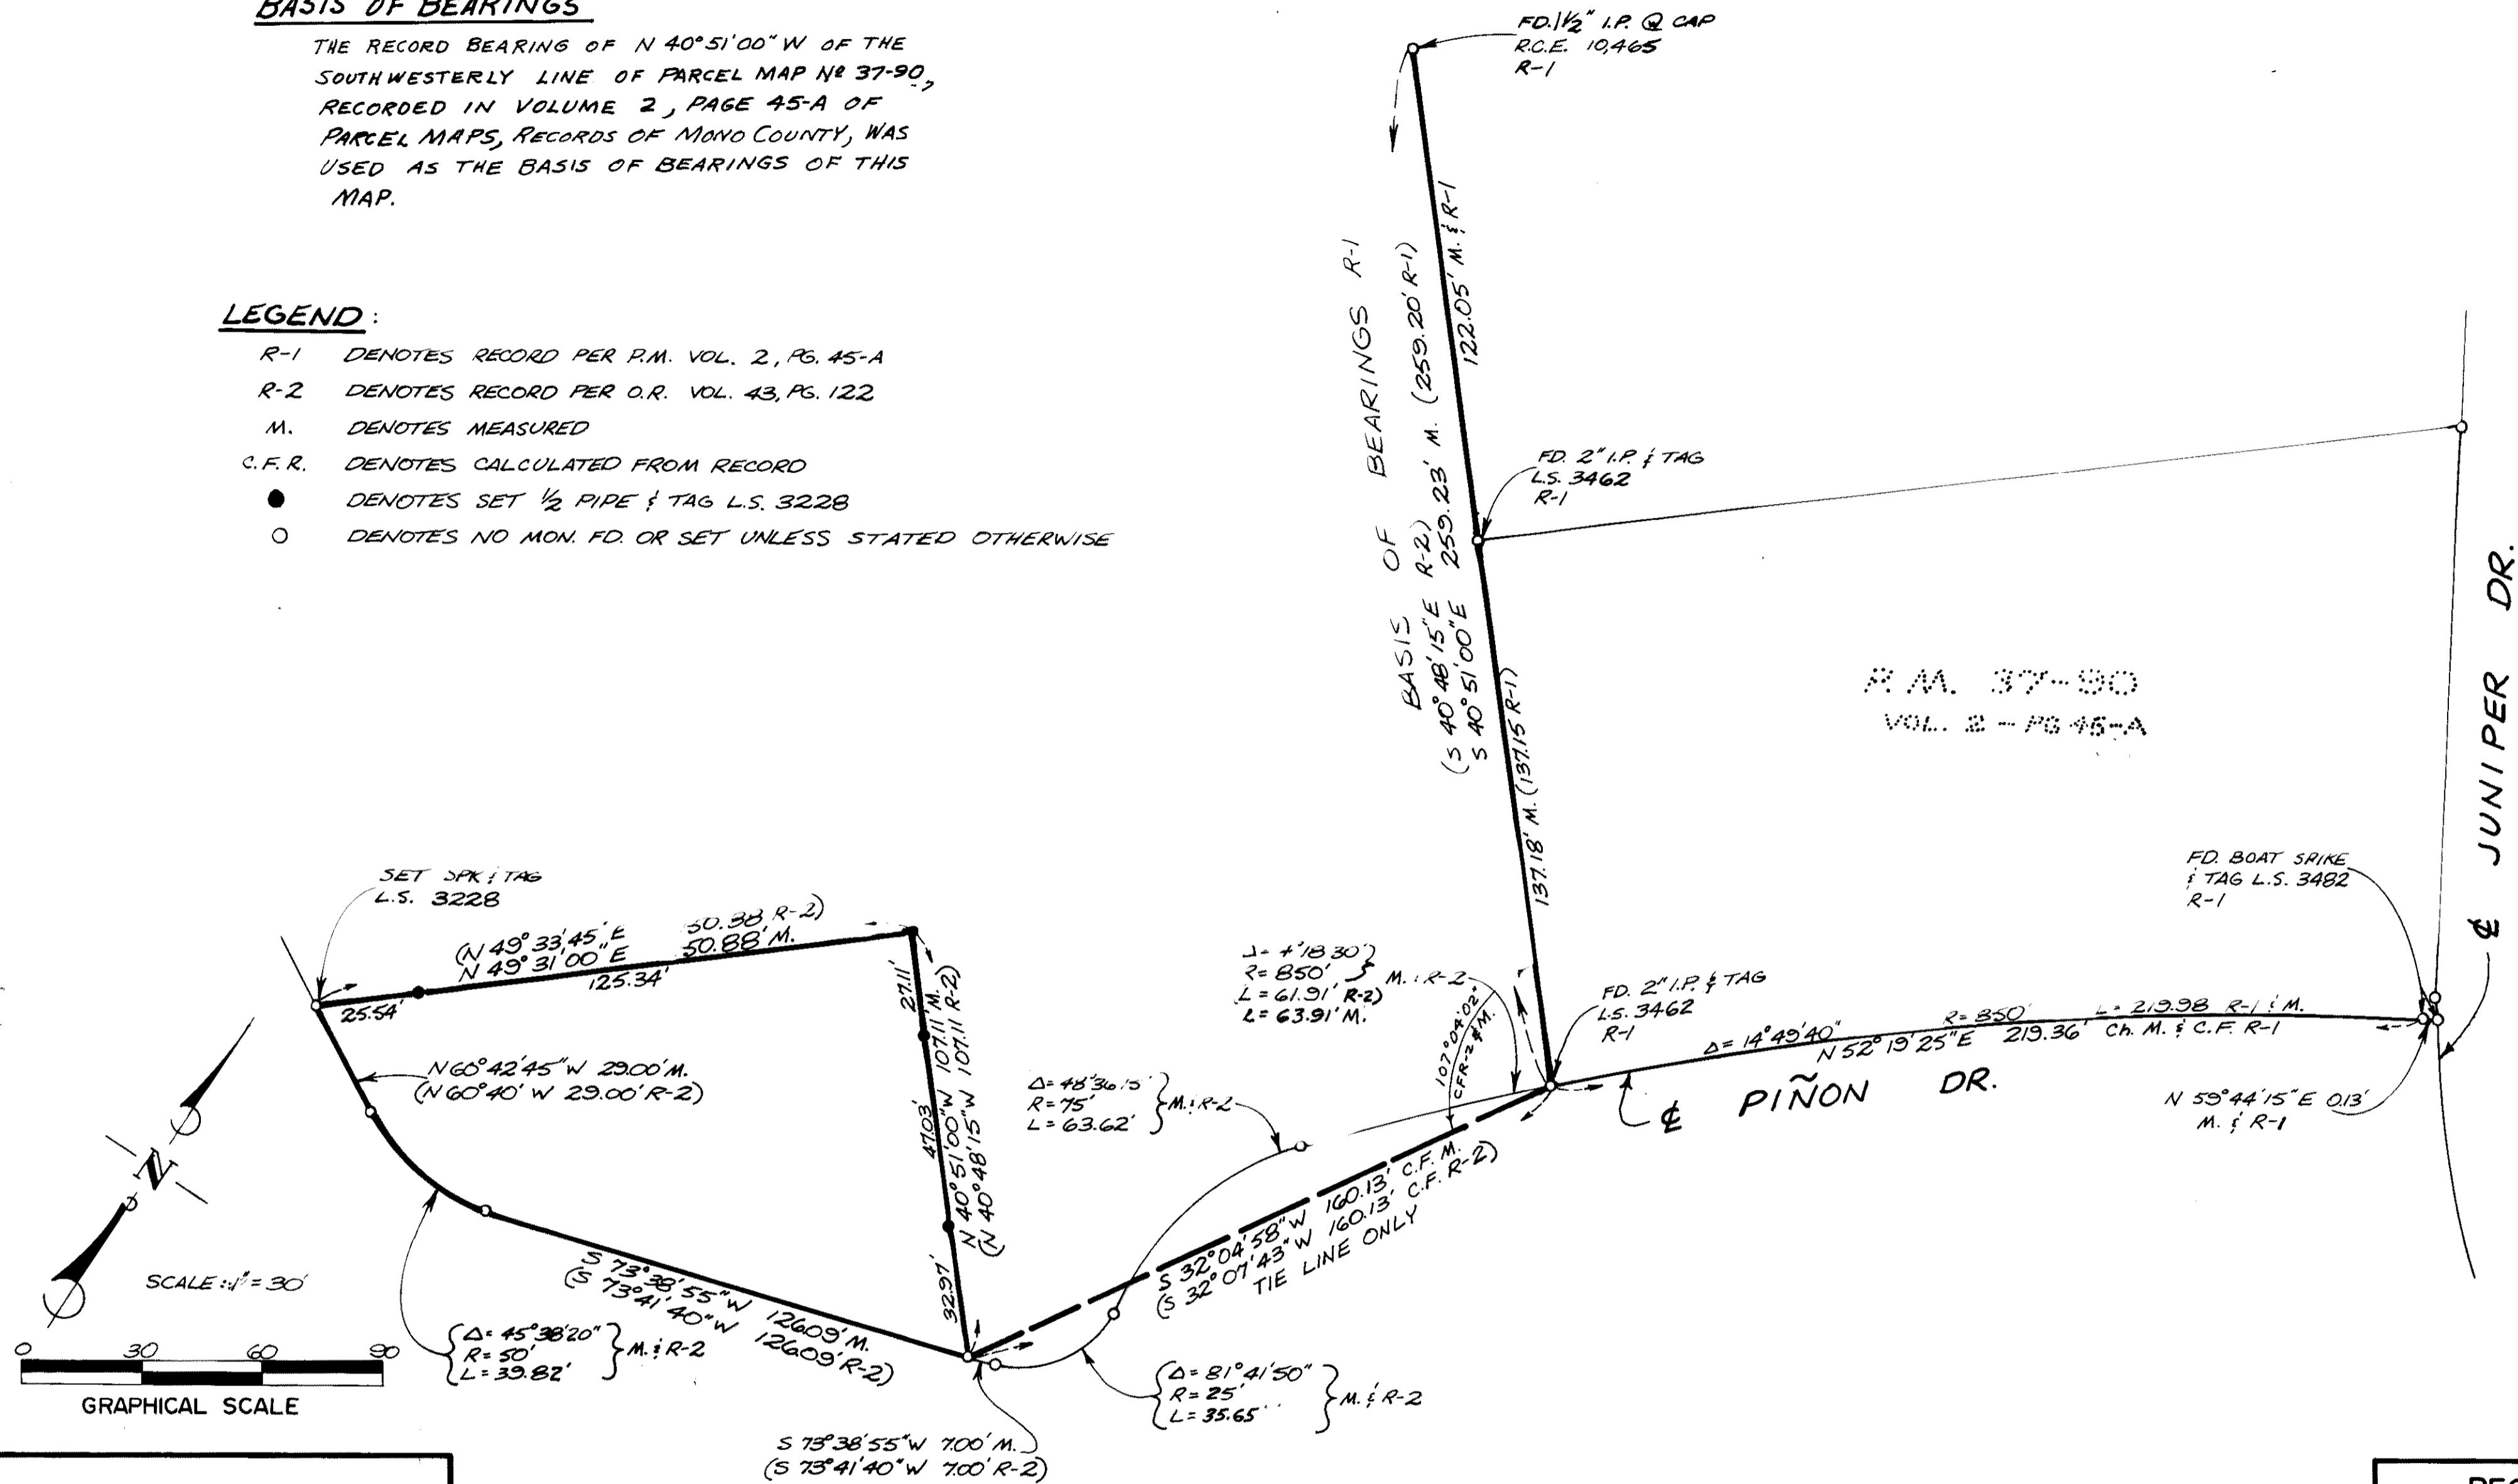 BASIS OF BEARINGS
THE RECORD BEARING OF N 40°51'00" W OF THE
SOUTHWESTERLY LINE OF PARCEL MAP Nº 37-90,
RECORDED IN VOLUME 2, PAGE 45-A OF
PARCEL MAPS, RECORDS OF MONO COUNTY, WAS
USED AS THE BASIS OF BEARINGS OF THIS
MAP.
LEGEND:
R-1 DENOTES RECORD PER P.M. VOL. 2, PG. 45-A
R-2 DENOTES RECORD PER O.R. VOL. 43, PG. 122
M. DENOTES MEASURED
C.F.R. DENOTES CALCULATED FROM RECORD
● DENOTES SET 1/2 PIPE & TAG L.S. 3228
○ DENOTES NO MON. FD. OR SET UNLESS STATED OTHERWISE
FD. 1 1/2" I.P. @ CAP
R.C.E. 10,465
R-1
BASIS OF BEARINGS R-1
(S 40°48'15"E R-2)
S 40°51'00"E 259.23' M. (259.20' R-1)
122.05' M. & R-1
FD. 2" I.P. & TAG
L.S. 3462
R-1
137.18' M. (137.15 R-1)
P.M. 37-90
VOL. 2 - PG 45-A
℄ JUNIPER DR.
FD. BOAT SPIKE
& TAG L.S. 3482
R-1
SET SPK & TAG
L.S. 3228
(N 49°33'45"E 50.38 R-2)
N 49°31'00"E 50.88' M.
25.54'
125.34'
27.11'
47.03'
32.97'
N 40°51'00"W 107.11' M.
(N 40°48'15"W 107.11 R-2)
N 60°42'45"W 29.00' M.
(N 60°40' W 29.00' R-2)
Δ= 4°18'30"
R= 850'
(L = 61.91' R-2)
L= 63.91' M.
M. & R-2
107°04'02"
CFR-2 & M.
FD. 2" I.P. & TAG
L.S. 3462
R-1
Δ= 14°49'40" R= 850' L= 219.98 R-1 & M.
N 52°19'25"E 219.36' Ch. M. & C.F. R-1
℄ PIÑON DR.
N 59°44'15"E 0.13'
M. & R-1
Δ= 48°36'15"
R= 75'
L= 63.62'
M. & R-2
S 32°04'58"W 160.13' C.F. M.
(S 32°07'43"W 160.13' C.F. R-2)
TIE LINE ONLY
N
SCALE: 1" = 30'
0 30 60 90
GRAPHICAL SCALE
S 73°38'55"W 126.09' M.
(S 73°41'40"W 126.09' R-2)
Δ= 45°38'20"
R= 50'
L= 39.82'
M. & R-2
Δ= 81°41'50"
R= 25'
L= 35.65'
M. & R-2
S 73°38'55"W 7.00' M.
(S 73°41'40"W 7.00' R-2)